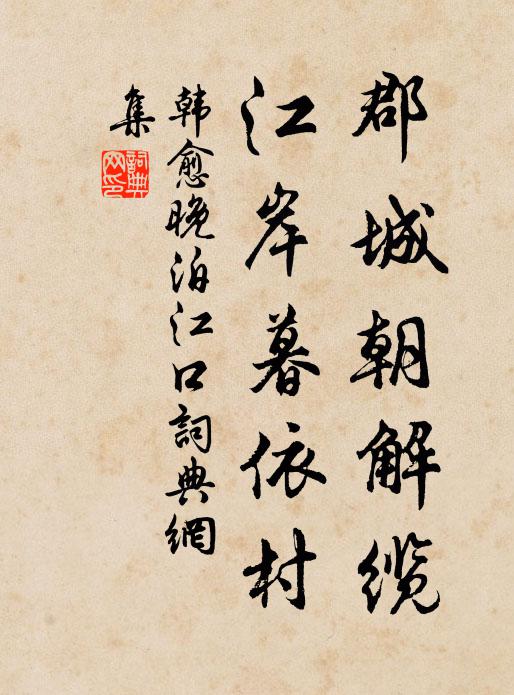 郡城朝解纜
江岸暮依村
韩愈晚泊江口詞典網
集
詞典
网印